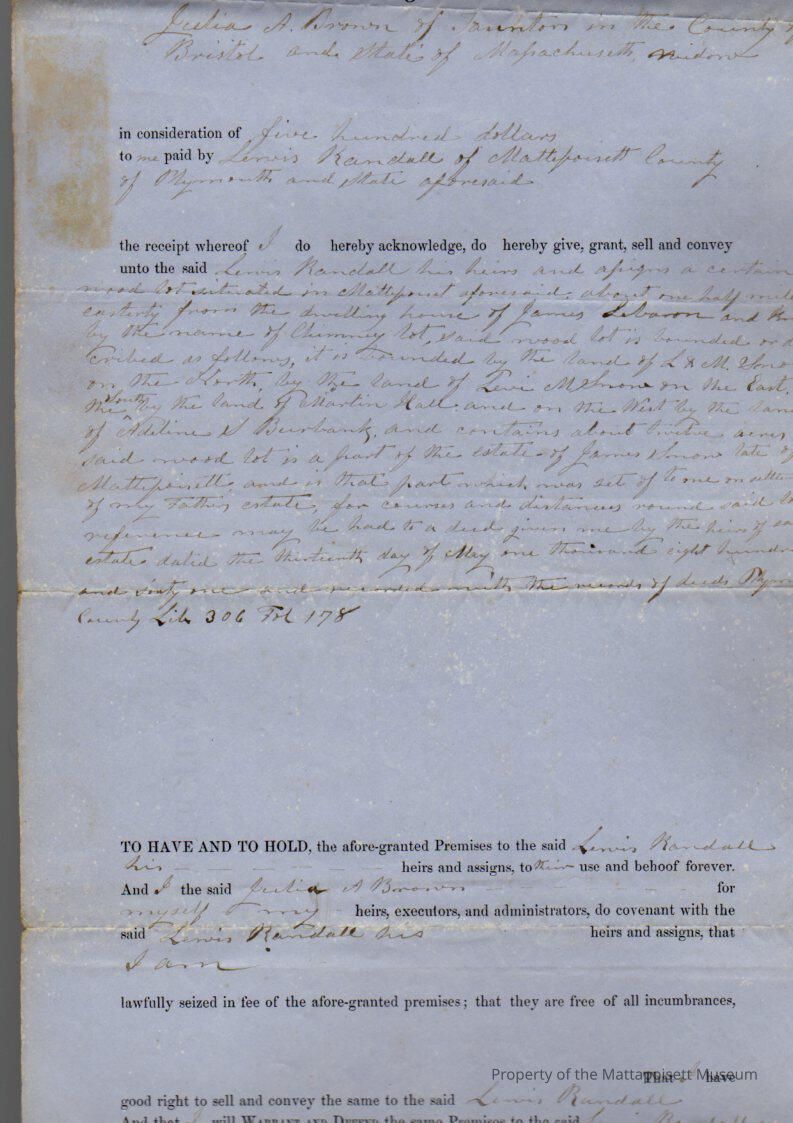 Julia A. Brown of Taunton in the County of
Bristol and State of Massachusetts, widow
in consideration of five hundred dollars
to me paid by Lewis Randall of Mattapoisett County
of Plymouth and State aforesaid
the receipt whereof I do hereby acknowledge, do hereby give, grant, sell and convey
unto the said Lewis Randall his heirs and assigns a certain
wood lot situated in Mattapoiset aforesaid about one half mile
easterly from the dwelling house of James Lebaron and
by the name of Chimney lot, said wood lot is bounded or
cribed as follows, it is bounded by the land of L & M. Snow
on the North, by the land of Levi M Snow on the East,
the South by the land of Martin Hall and on the West by the land
of Adeline S Burbank, and contains about twelve acres
said wood lot is a part of the estate of James Snow late of
Mattapoisett and is that part which was set of to me on
of my Fathers estate, for courses and distances round said
reference may be had to a deed given me by the heirs of
estate dated the thirteenth day of May one thousand eight hundred
and sixty one and recorded with the records of deeds
County Lib 306 Fol 178
TO HAVE AND TO HOLD, the afore-granted Premises to the said Lewis Randall
his heirs and assigns, to their use and behoof forever.
And I the said Julia A Brown for
myself & my heirs, executors, and administrators, do covenant with the
said Lewis Randall his heirs and assigns, that
I am
lawfully seized in fee of the afore-granted premises; that they are free of all incumbrances,
That I have
Property of the Mattapoisett Museum
good right to sell and convey the same to the said Lewis Randall
And that I will WARRANT AND DEFEND the same Premises to the said Lewis Randall